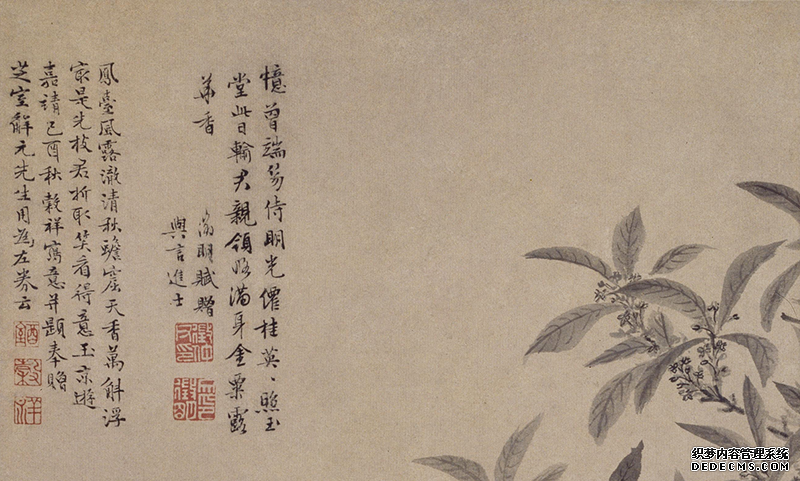 憶曾端笏侍明光僊桂英〻照玉
堂此日輸君親領略滿身金粟露
華香
徵明賦贈
與言進士
鳳臺風露澈清秋蟾窟天香萬斛浮
家是先枝君折取笑看得意玉京遊
嘉靖己酉秋穀祥寫意并題奉贈
芝室解元先生用為左券云
穀
祥
织梦内容管理系统
DEDECMS.COM